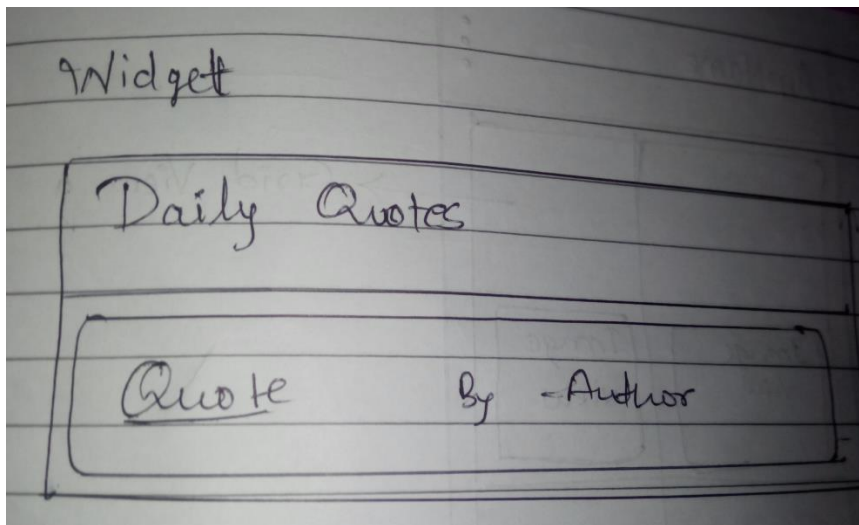 Widget
Daily Quotes
Quote By -Author